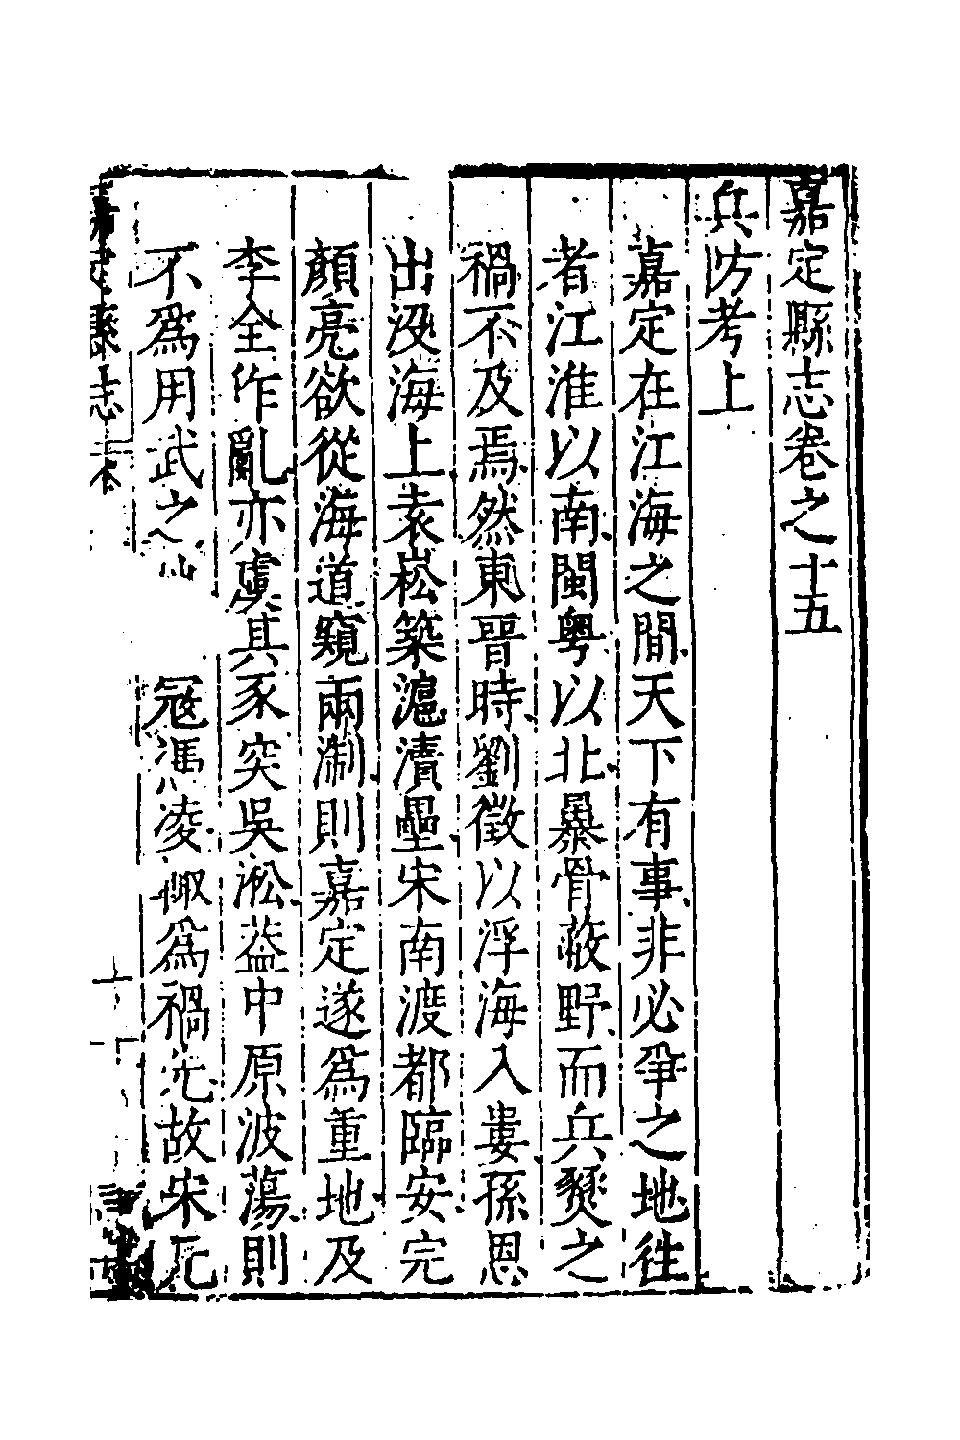 嘉定縣志卷之十五
兵防考上
嘉定在江海之間天下有事非必爭之地徃
者江淮以南閩粤以北暴骨蔽野而兵燹之
禍不及焉然東晉時劉徵以浮海入婁孫恩
出沒海上袁崧築滬瀆壘宋南渡都臨安完
顏亮欲從海道窺兩淛則嘉定遂爲重地及
李全作亂亦虞其豕突吳淞葢中原波蕩則
不爲用武之 寇馮凌 爲禍 故宋元
嘉定縣志